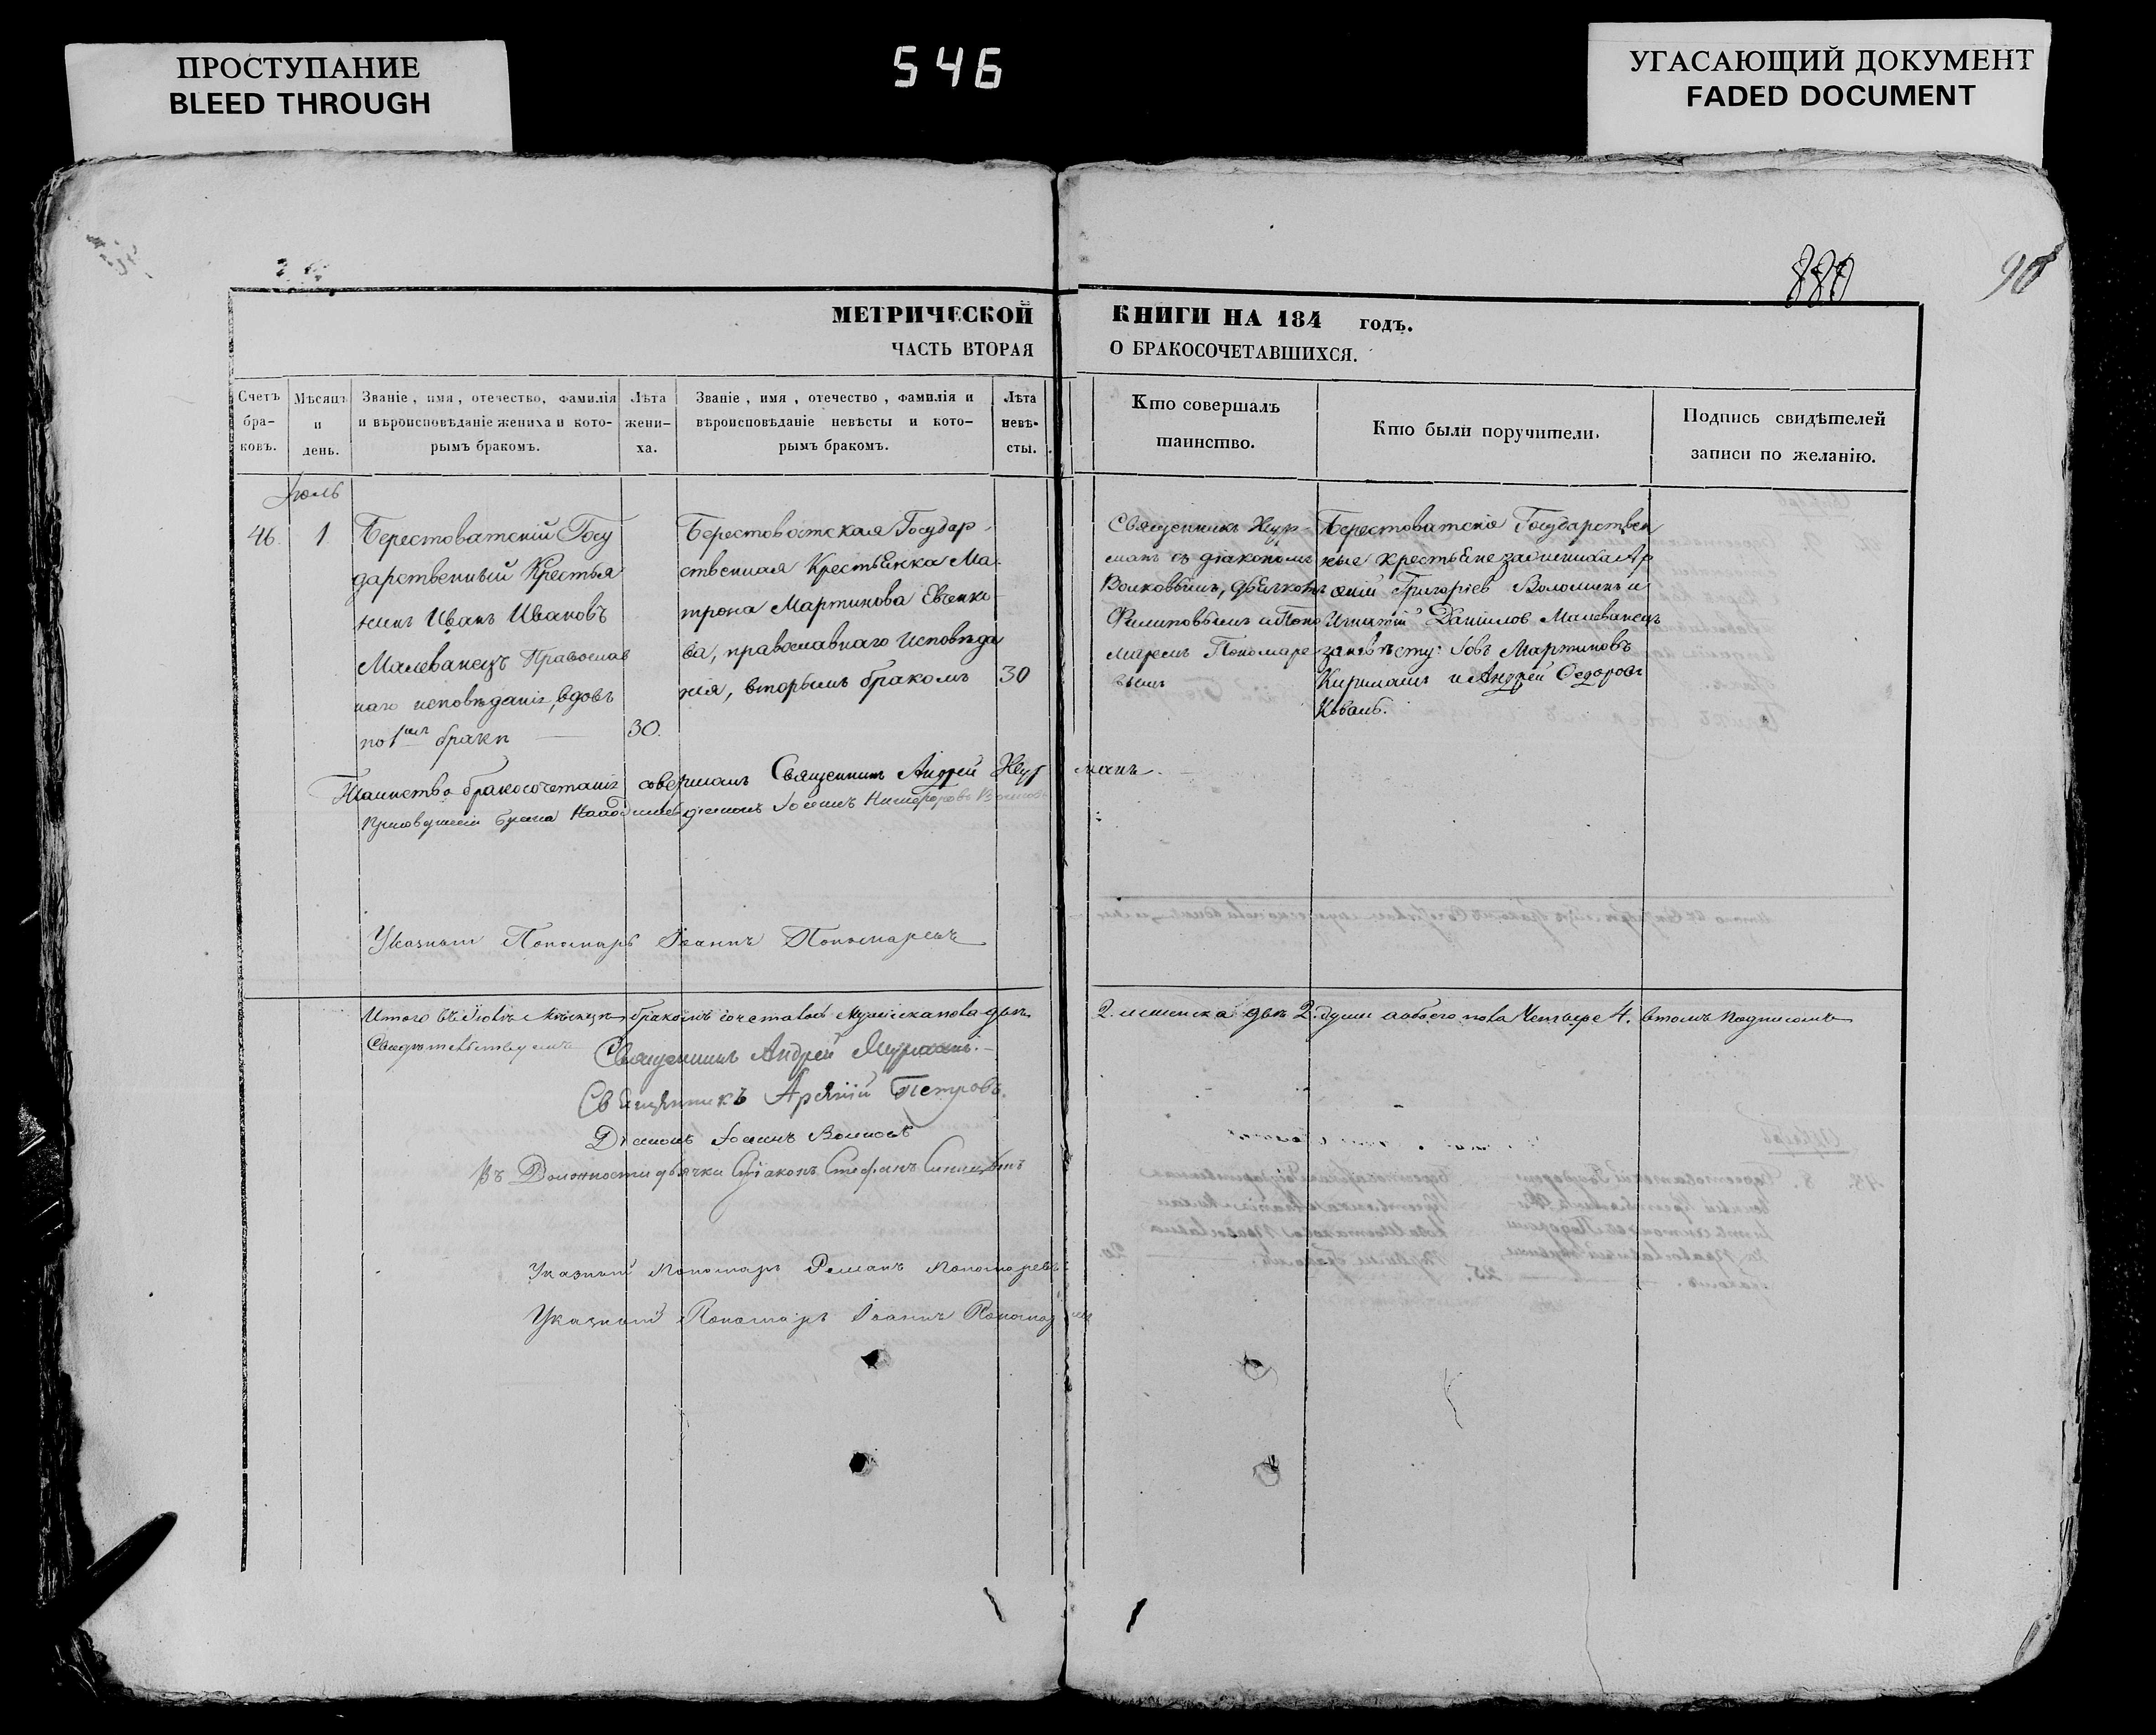 ПРОСТУПАНИЕ
BLEED THROUGH
546
УГАСАЮЩИЙ ДОКУМЕНТ
FADED DOCUMENT
90
МЕТРИЧЕСКОЙ КНИГИ НА 184 годъ.
ЧАСТЬ ВТОРАЯ О БРАКОСОЧЕТАВШИХСЯ.
Счетъ бра-ковъ.
Мѣсяцъ и день.
Званіе, имя, отечество, фамилія и вѣроисповѣданіе жениха и кото-рымъ бракомъ.
Лѣта жени-ха.
Званіе, имя, отечество, фамилія и вѣроисповѣданіе невѣсты и кото-рымъ бракомъ.
Лѣта невѣ-сты.
Кто совершалъ таинство.
Кто были поручители.
Подпись свидѣтелей записи по желанію.
Іюль
46. 1
Берестоватскій Госу
дарственный Крестья
нинъ Иванъ Ивановъ
Малеванецъ Православ
наго исповѣданія, вдовъ
по 1мъ бракѣ 30.
Берестоватская Государ-
ственная Крестьянка Ма-
трона Мартинова Евтенко
ва, православнаго исповѣда
нія, вторымъ бракомъ 30
Священникъ
манъ съ діакономъ
Волковымъ, дьячкомъ
Филиповымъ и Поно
маремъ Пономаре
вымъ
Берестоватскіе Государствен
ные крестьяне за жениха Ар
Григоріев Волошинъ и
Игнатій Данилов Малеванецъ
за невѣсту: Іовъ Мартиновъ
и Андрей Ѳедоровъ
Таинство бракосочетанія совершалъ Священникъ Андрей
діаконъ Іоаннъ Никифоровъ
Указный Пономарь Іоаннъ Пономаревъ
Итого въ Іюлѣ Мѣсяцѣ бракомъ сочеталось мужеска пола двѣ 2. женска двѣ 2. души а обоего пола Четыре 4. в томъ подписомъ
Свидѣтельствуемъ
Священникъ Андрей
Священникъ Арсеній Петровъ.
Діаконъ Іоаннъ Волковъ
Въ Должности дьячка Діаконъ Стефанъ
Указный Пономарь Романъ Пономаревъ
Указный Пономарь Іоаннъ Пономаревъ